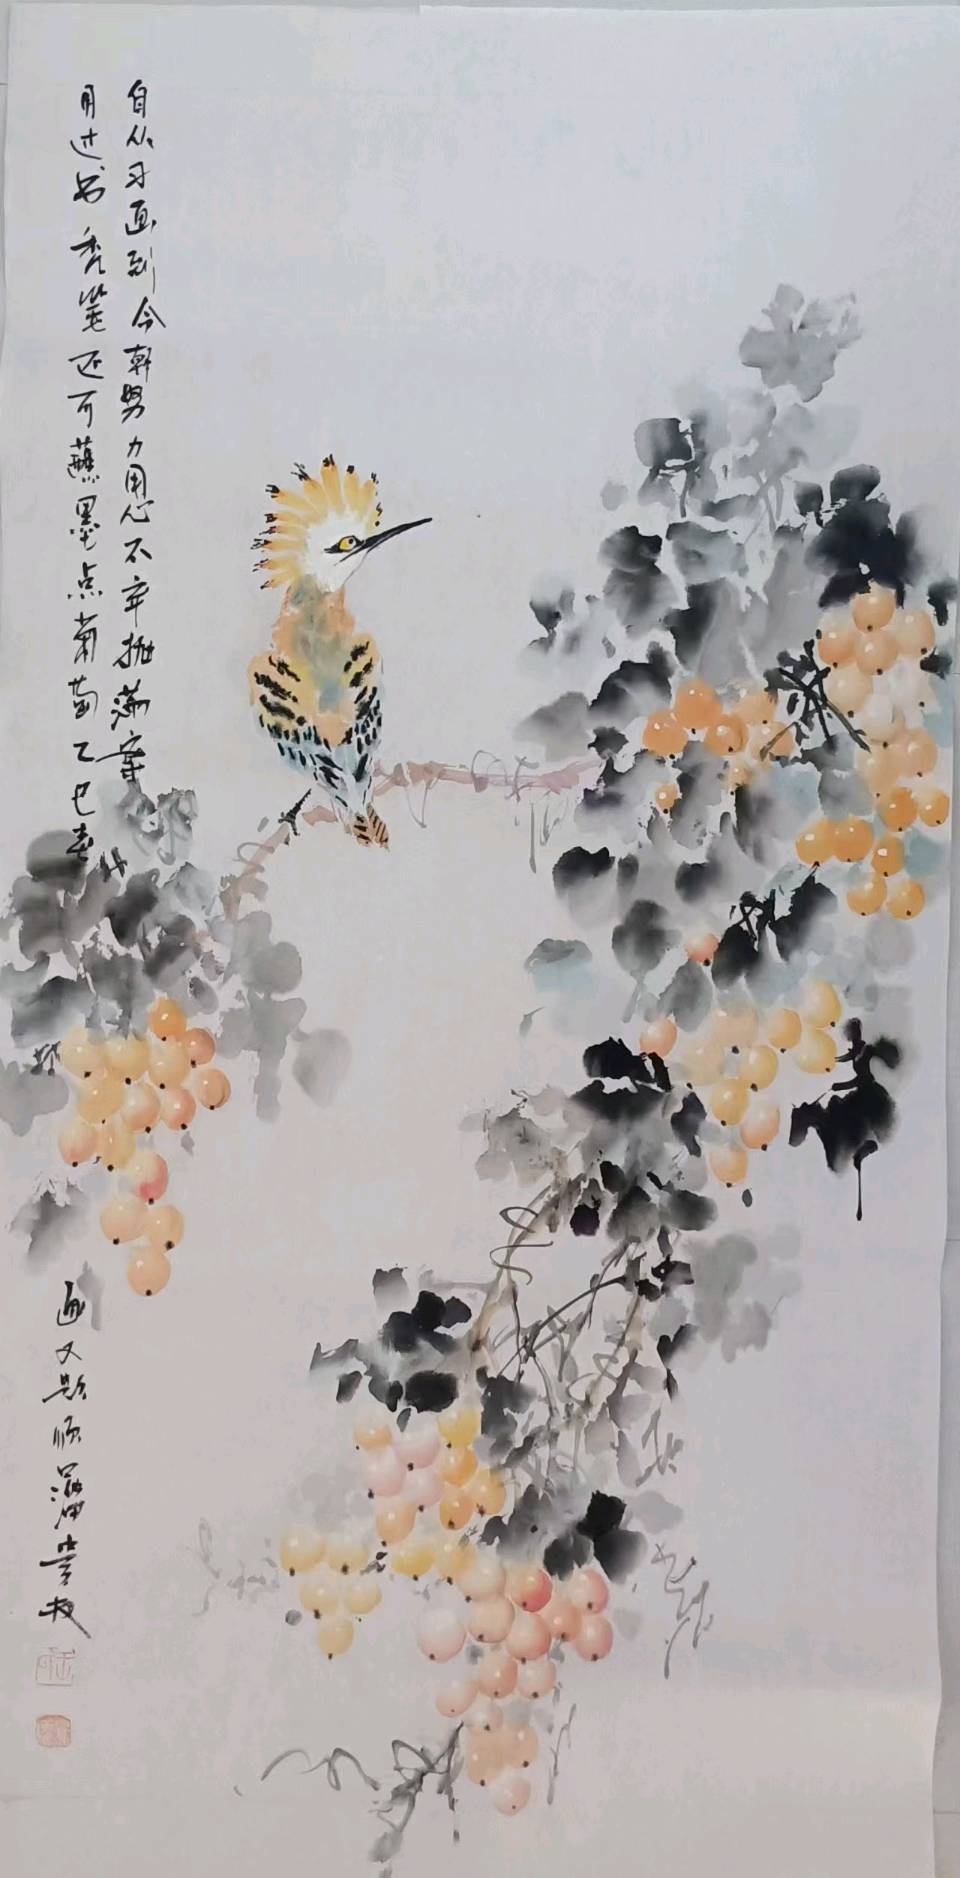 自从习画到今朝努力用心不辛抛满案
用过的秃笔还可蘸墨点葡萄乙巳春
画又题顺